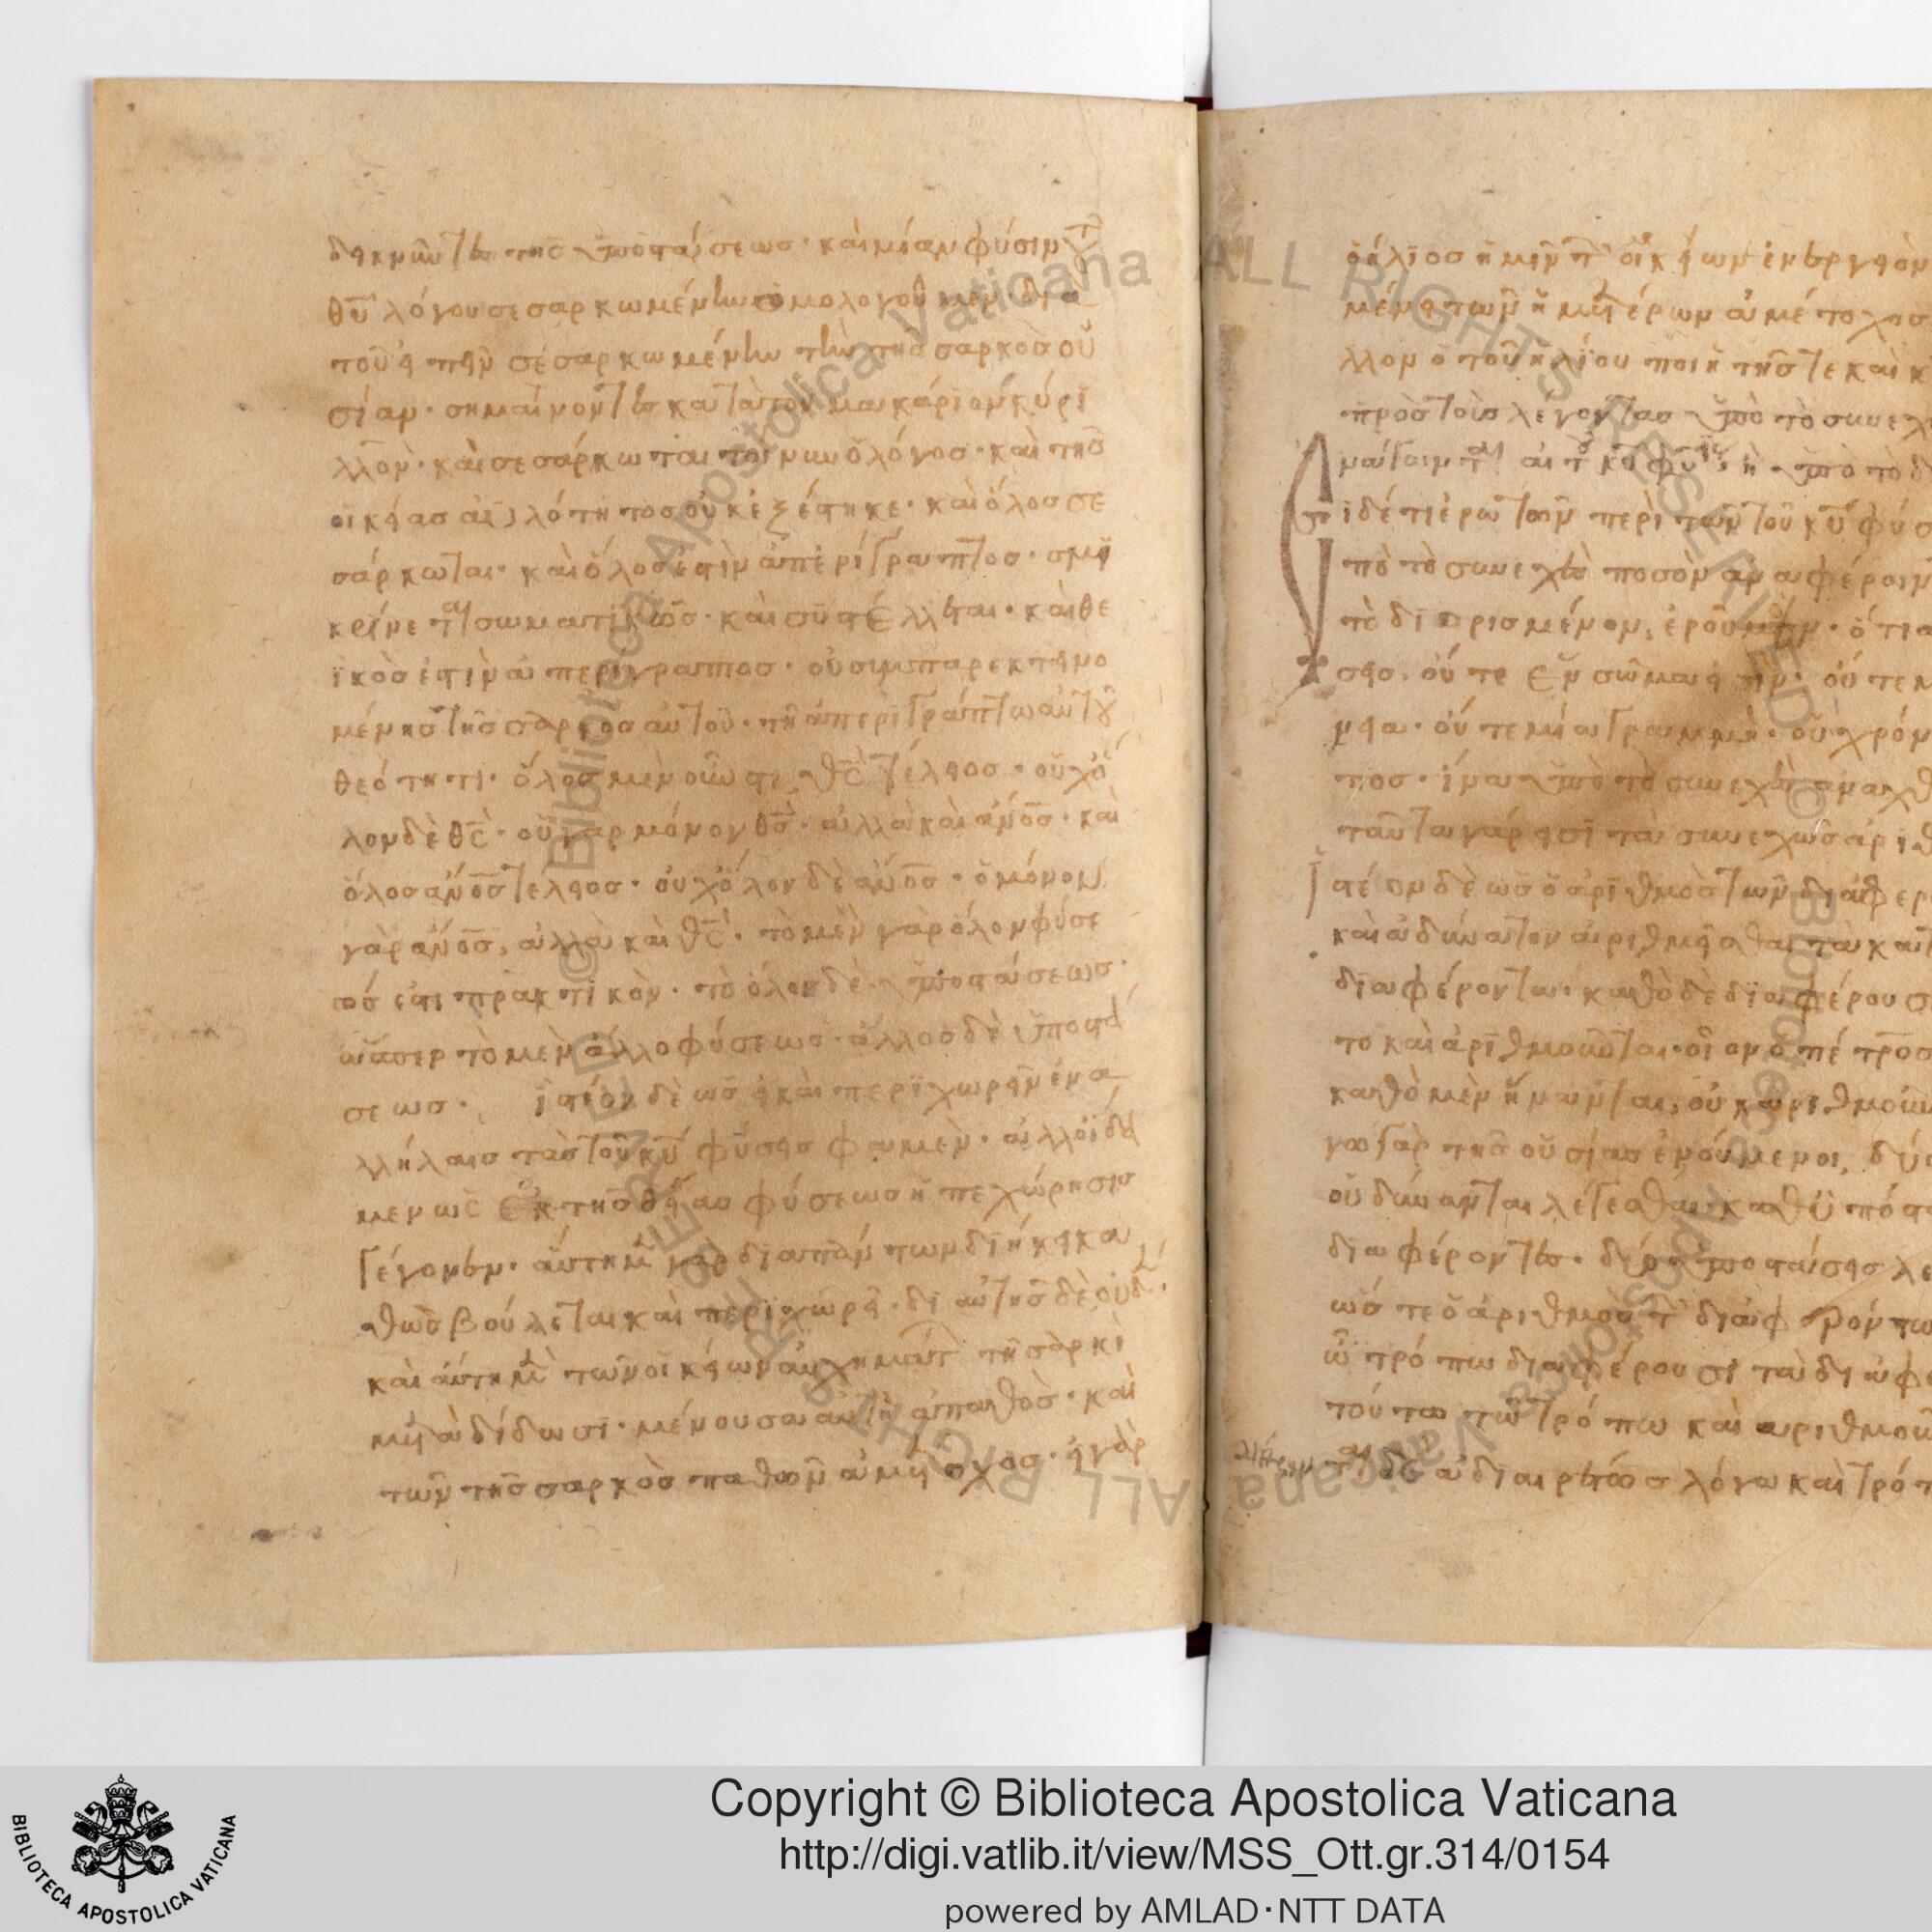 δεικνύντες τῆς ὑποστάσεως· καὶ μίαν φύσιν τοῦ
θυ λόγου σεσαρκωμένην ὁμολογοῦμεν· διὰ
τοῦ εἰπεῖν σεσαρκωμένην τὴν τῆς σαρκὸς οὐ
σίαν· σημαίνοντες κατὰ τὸν μακάριον κύρι
λλον· καὶ σεσάρκωται τοίνυν ὁ λόγος· καὶ τῆς
οἰκείας ἀϋλότητος οὐκ ἐξέστηκε· καὶ ὅλος σε
σάρκωται· καὶ ὅλος ἐστὶν ἀπερίγραπτος· σμι
κρύνεται σωματικῶς· καὶ συστέλλεται· καὶ θε
ϊκῶς ἐστὶν ἀπερίγραπτος· οὐ συμπαρεκτεινο
μένης τῆς σαρκὸς αὐτοῦ· τῇ ἀπεριγράπτω αὐτοῦ
θεότητι· ὅλος μὲν οὖν ἐστι θς τέλειος· οὐχ ὅ
λον δὲ θς· οὐ γὰρ μόνον θς· ἀλλὰ καὶ ανος· καὶ
ὅλος ανος τέλειος· οὐχ ὅλον δὲ ανος· οὐ μόνον
γὰρ ανος, ἀλλὰ καὶ θς· τὸ μὲν γὰρ ὅλον φύσε
ώς ἐστι παραστατικὸν· τὸ ὅλος δὲ ὑποστάσεως·
ὥσπερ τὸ μὲν ἄλλο φύσεως· ἄλλος δὲ ὑποστά
σεως· ἰστέον δὲ ὡς εἰ καὶ περιχωρεῖν ἐν ἀ
λλήλαις τὰς τοῦ κυ φύσεις φαμὲν· ἀλλ' οἴδα
μεν ὡς ἐκ τῆς θείας φύσεως ἡ περιχώρησις
γέγονεν· αὕτη μὲν γὰρ διὰ πάντων διήκει κα
θὼς βούλεται καὶ περιχωρεῖ· δι αὐτῆς δὲ οὐδέν·
καὶ αὕτη μὲν τῶν οἰκείων αὐχημάτων τῇ σαρκὶ
μεταδίδωσι· μένουσα αὐτὴ ἀπαθὴς· καὶ
τῶν τῆς σαρκὸς παθῶν ἀμέτοχος· εἰ γὰρ
ὁ ἥλιος ἡμῖν τῶν οἰκείων ἐνεργειῶν
μένει τῶν ἡμετέρων ἀμέτοχος
λλον ὁ τοῦ ἡλίου ποιητής τε καὶ κ
πρὸς τοὺς λέγοντας ὑπὸ τὸ συνεχ
νάγονται αἱ τοῦ κυ φύσεις ἢ ὑπὸ τὸ δ
Εἰ δέ τις ἐρωτῶν περὶ τῶν τοῦ κυ φύσ
πὸ τὸ συνεχὲς ποσὸν ἀναφέροιν
τὸ διωρισμένον, ἐροῦμεν· ὅτι α
σεις, οὔτε ἓν σῶμα εἰσιν· οὔτε μ
νεια· οὔτε μία γραμμὴ· οὐ χρόν
πος· ἵνα ὑπὸ τὸ συνεχὲς ἀναχθ
ταῦτα γάρ εἰσι τὰ συνεχῶς ἀριθ
Ἰστέον δὲ ὡς ὁ ἀριθμὸς τῶν διαφερ
καὶ ἀδύνατον ἀριθμεῖσθαι τὰ κατ
διαφέροντα· καθὸ δὲ διαφέρουσ
το καὶ ἀριθμοῦνται· οἷον ὁ πέτρος
καθὸ μὲν ἥνωνται, οὐκ ἀριθμοῦν
γω γὰρ τῆς οὐσίας ἑνούμενοι, δύο
οὐ δύνανται λέγεσθαι· καθ' ὑπόστ
διαφέροντες· δύο ὑποστάσεις λέ
ὥστε ὁ ἀριθμὸς τῶν διαφερόντω
ᾧ τρόπω διαφέρουσι τὰ διαφέ
τούτω τῷ τρόπω καὶ ἀριθμοῦ
ται δὲ ἀδιαιρέτως λόγω καὶ τρόπ
Copyright © Biblioteca Apostolica Vaticana
http://digi.vatlib.it/view/MSS_Ott.gr.314/0154
powered by AMLAD·NTT DATA
BIBLIOTECA APOSTOLICA VATICANA